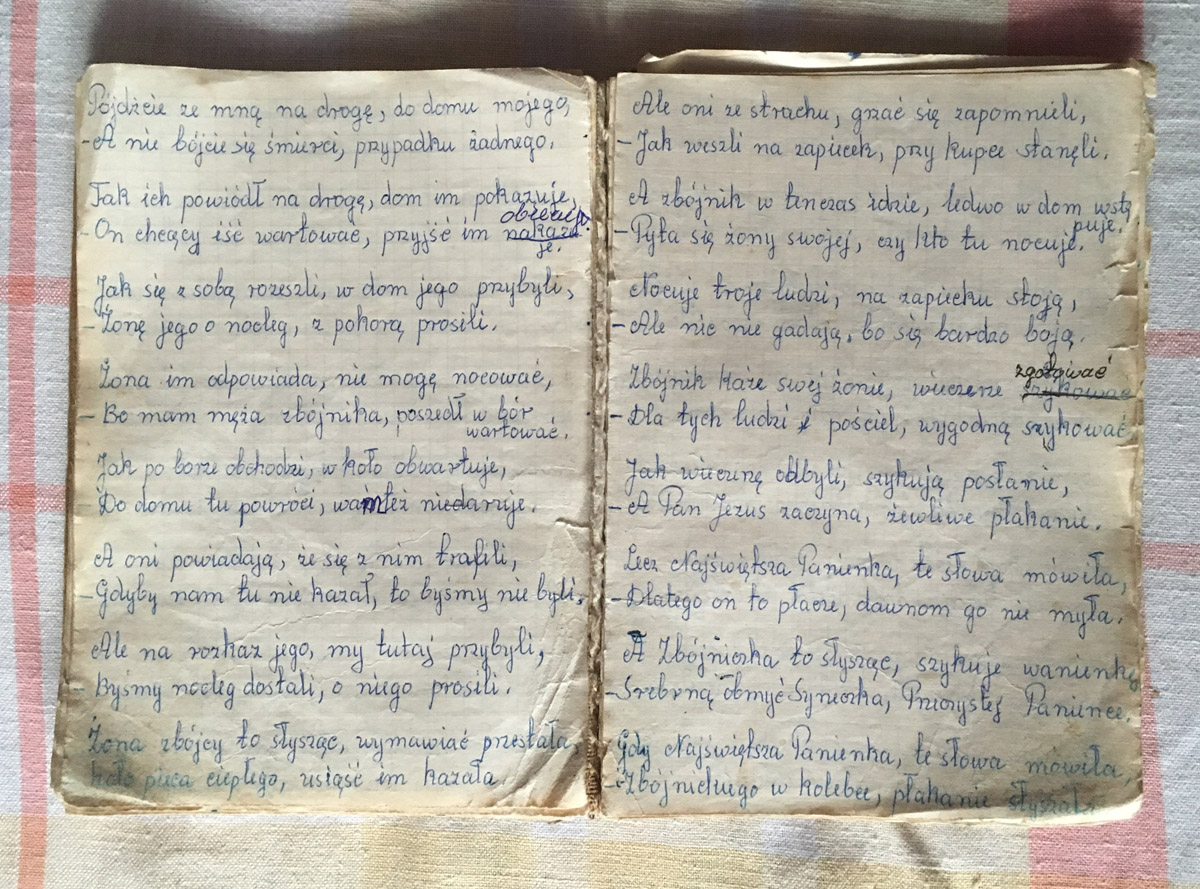 Pójdźcie ze mną na drogę, do domu mojego,
- A nie bójcie się śmierci, przypadku żadnego.
Tak ich powiódł na drogę, dom im pokazuje,
obiecuje.
- On chcący iść wartować, przyjść im nakazu
je.
Jak się z sobą rozeszli, w dom jego przybyli,
- Żonę jego o nocleg, z pokorą prosili.
Żona im odpowiada, nie mogę nocować,
- Bo mam męża zbójnika, poszedł w bór
wartować.
Jak po borze obchodzi, w koło obwartuje,
- Do domu tu powróci, wam też niedaruje.
A oni powiadają, że się z nim trafili,
- Gdyby nam tu nie kazał, to byśmy nie byli,
Ale na rozkaz jego, my tutaj przybyli,
- Byśmy nocleg dostali, o niego prosili.
Żona zbójcy to słysząc, wymawiać przestała,
koło pieca ciepłego, usiąść im kazała.
Ale oni ze strachu, grzać się zapomnieli,
- Jak weszli na zapiecek, przy kupce stanęli.
A zbójnik w tenczas idzie, ledwo w dom wstę
puje.
- Pyta się żony swojej, czy kto tu nocuje.
Nocuje troje ludzi, na zapiecku stoją,
- Ale nic nie gadają, bo się bardzo boją.
zgotować
Zbójnik każe swej żonie, wieczerze szykować
- Dla tych ludzi i pościel, wygodną szykować
Jak wieczerzę odbyli, szykują posłanie,
- A Pan Jezus zaczyna, żewliwe płakanie.
Lecz Najświętsza Panienka, te słowa mówiła,
- Dlatego on to płacze, dawnom go nie myła.
A Zbójniczka to słysząc, szykuje wanienkę
- Srebrną obmyć Syneczka, Przczystej Panience.
Gdy Najświętsza Panienka, te słowa mówiła,
- Zbójnickiego w kolebce, płakanie słyszała